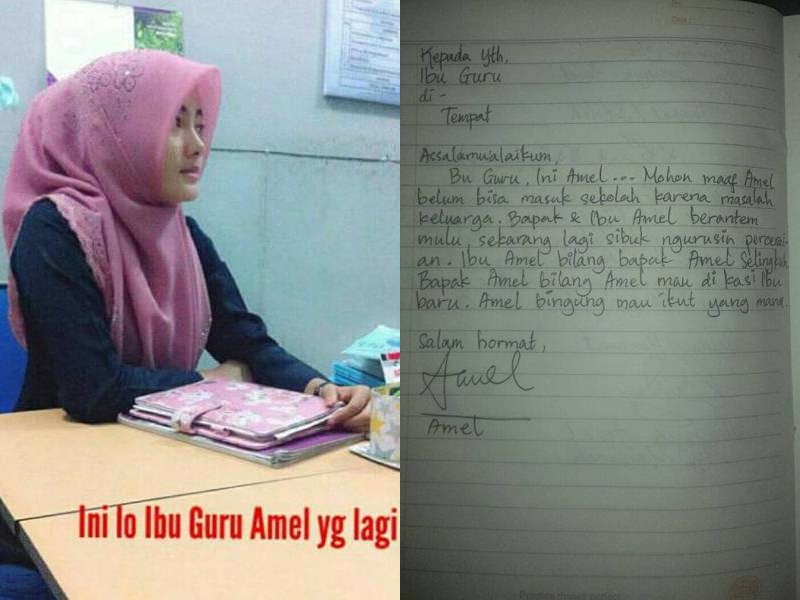 Ini lo Ibu Guru Amel yg lagi
Kepada Yth,
Ibu Guru
di -
Tempat
Assalamu'alaikum,
Bu Guru, Ini Amel ... Mohon maaf Amel
belum bisa masuk sekolah karena masalah
keluarga. Bapak & Ibu Amel berantem
mulu sekarang lagi sibuk ngurusin percerai-
an. Ibu Amel bilang bapak Amel Selingkuh.
Bapak Amel bilang Amel mau di kasi Ibu
baru. Amel bingung mau ikut yang mana.
Salam hormat,
Amel
Amel